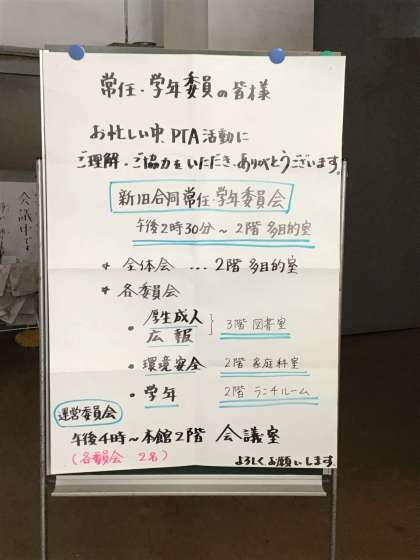 常任・学年委員の皆様
お忙しい中、PTA活動に
ご理解・ご協力をいただき、ありがとうございます。
新旧合同常任・学年委員会
午後2時30分～2階 多目的室
* 全体会 … 2階 多目的室
* 各委員会
・厚生成人
・広報 } 3階 図書室
・環境安全 2階 家庭科室
・学年 2階 ランチルーム
運営委員会
午後4時～本館2階 会議室
(各委員会 2名)
よろしくお願いします。
会議中です